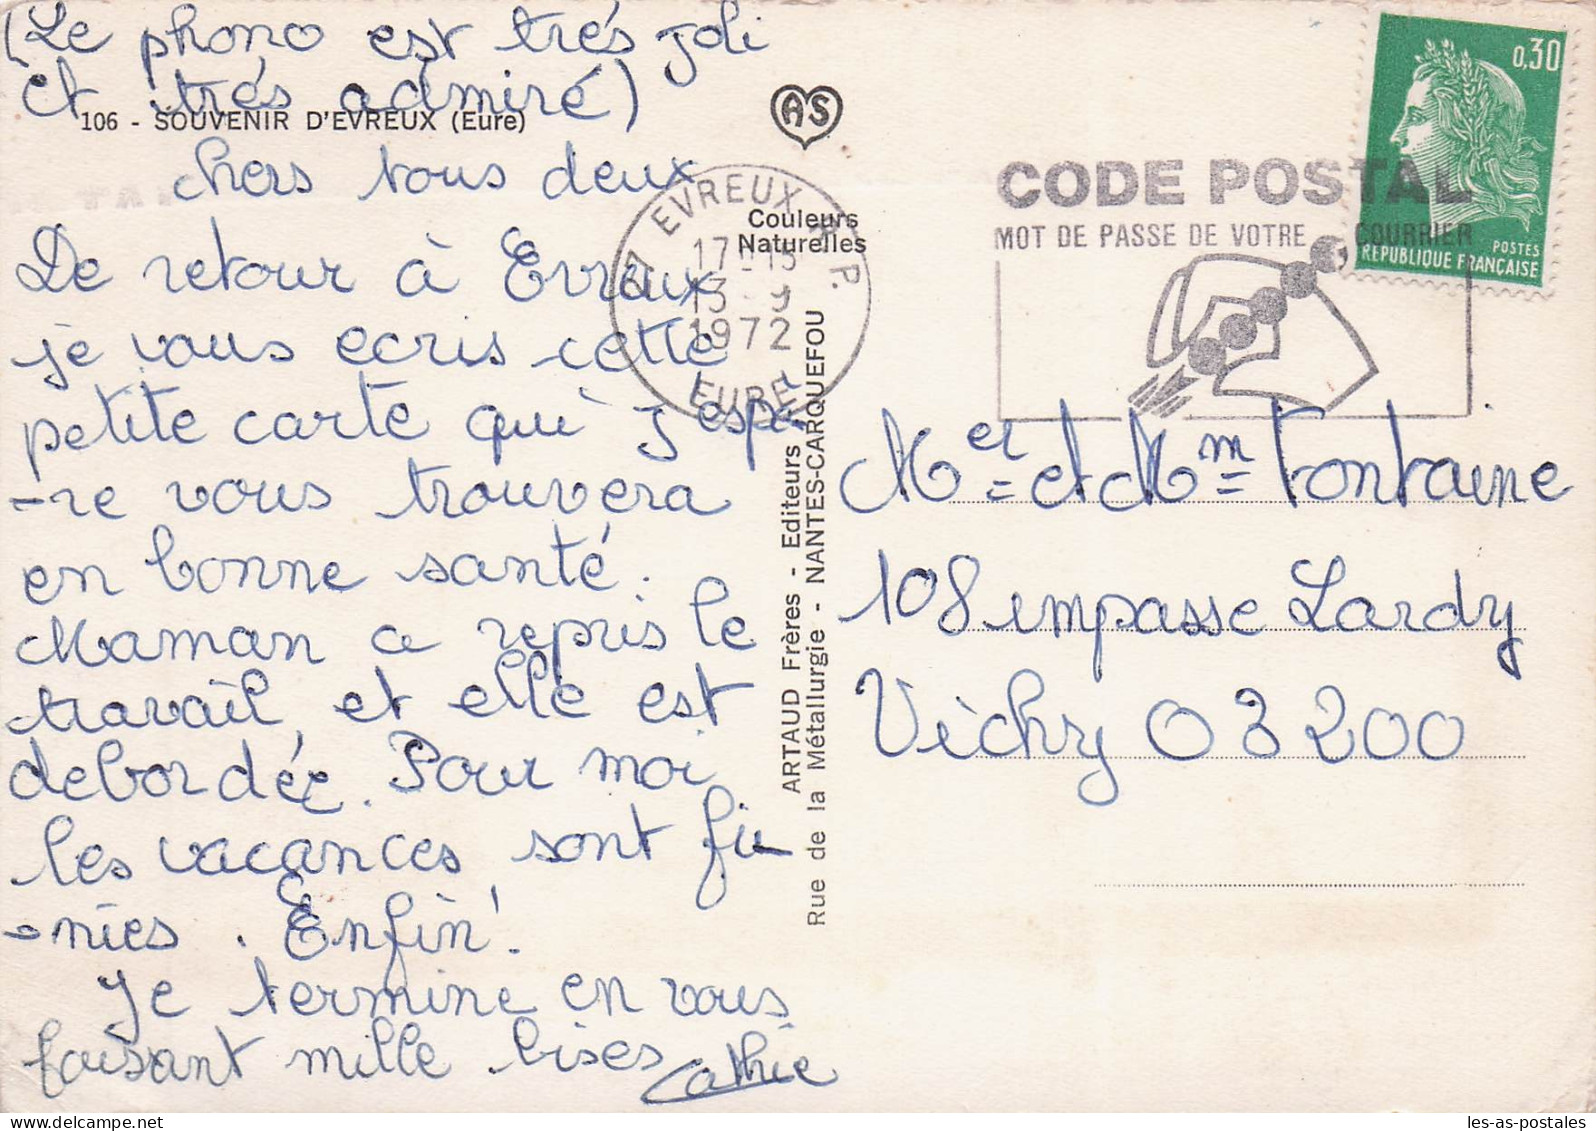 (Le phono est trés joli
et trés admiré)
106 - SOUVENIR D'EVREUX (Eure)
chers tous deux
De retour à Evreux
je vous ecris cette
petite carte qui j'espè
-re vous trouvera
en bonne santé.
Maman a repris le
travail, et elle est
debordée. Pour moi
les vacances sont fi
-nies. Enfin!
Je termine en vous
faisant mille bises
Cathie
AS
Couleurs
Naturelles
ARTAUD Frères - Editeurs
Rue de la Métallurgie - NANTES-CARQUEFOU
27 EVREUX R.P.
17-15
13-9
1972
EURE
CODE POSTAL
MOT DE PASSE DE VOTRE COURRIER
0,30
POSTES
REPUBLIQUE FRANÇAISE
Mer et Mm Fontaine
108 impasse Lardy
Vichy 03200
les-as-postales